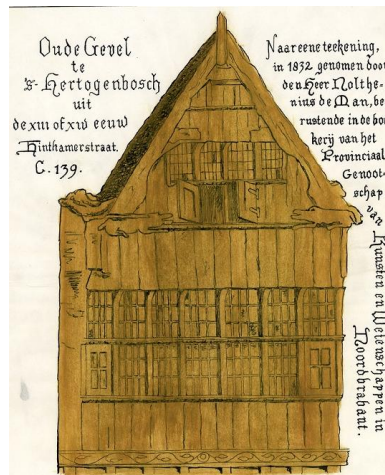 Oude Gevel
te
's-Hertogenbosch
uit
de XIII of XIV eeuw
Hinthamerstraat.
C. 139.
Naar eene teekening,
in 1832 genomen door
den Heer Nolthe-
nius de Man, be-
rustende in de boe-
kerij van het
Provinciaal
Genoot-
schap
van
Kunsten en Wetenschappen in
Noordbrabant.